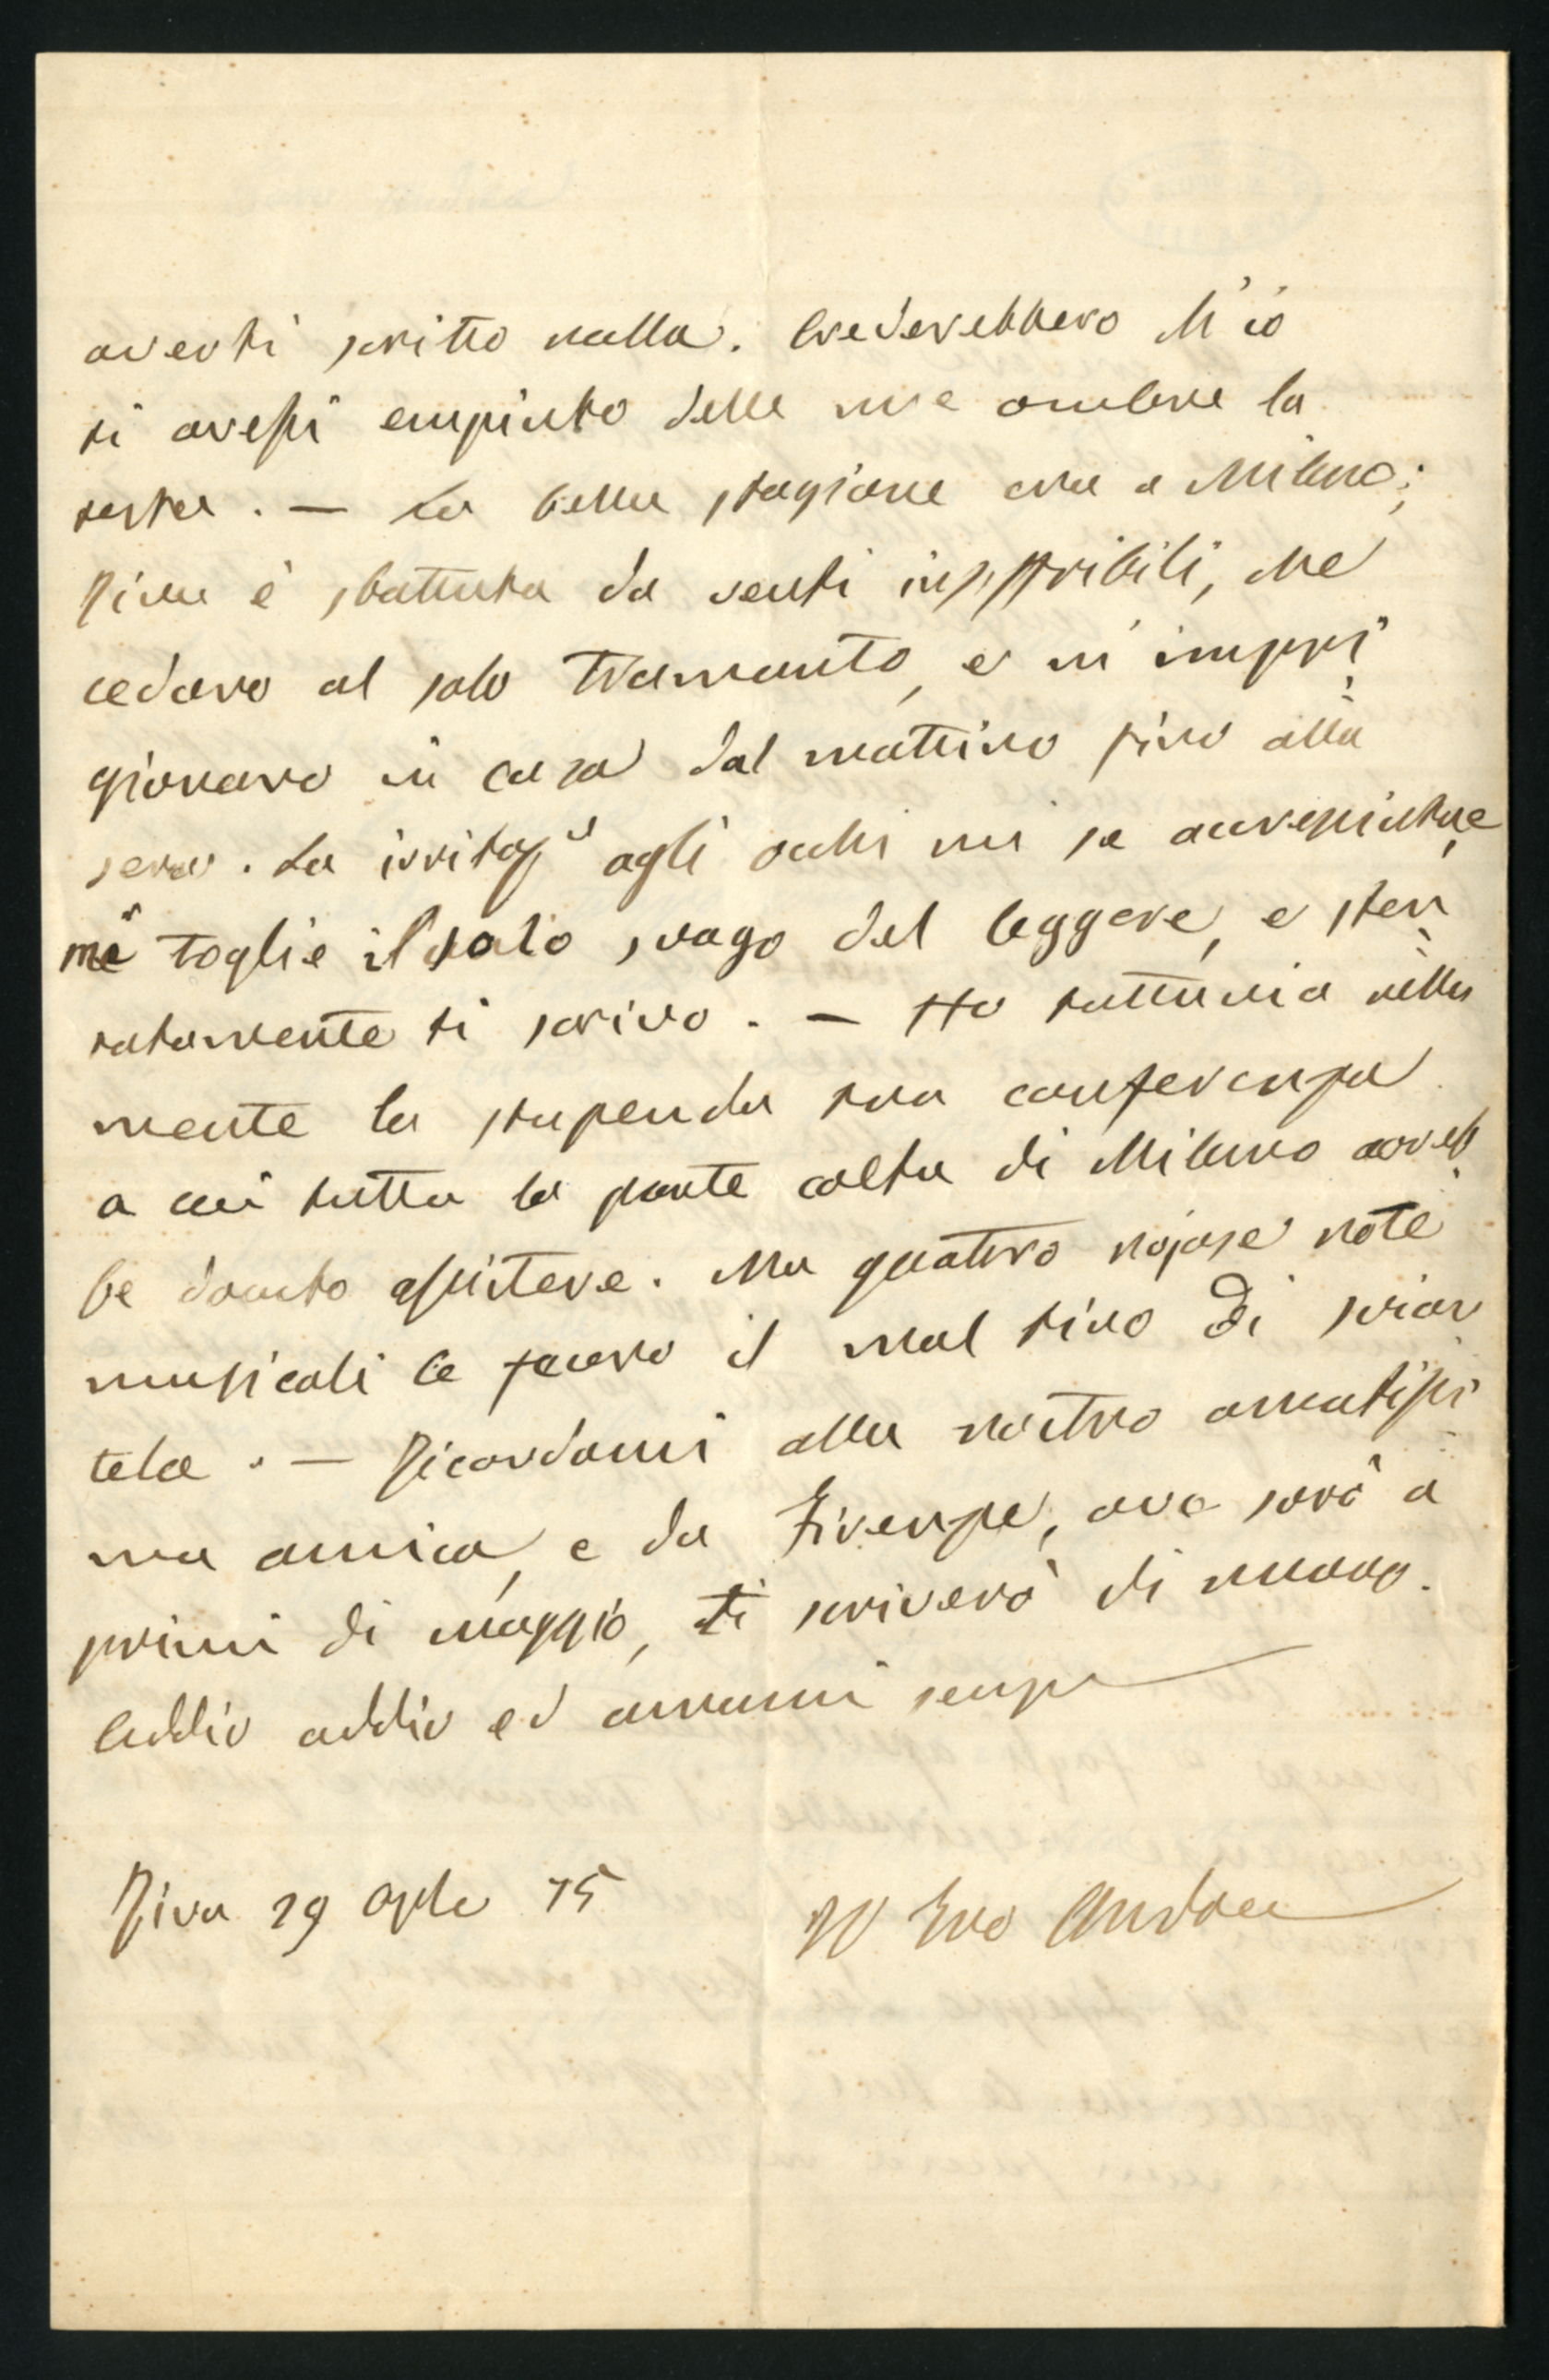 averti scritto nulla. Crederebbero ch'io
ti avessi empiuto delle mie ombre la
testa. — La bella stagione era a Milano;
Riva è sbattuta da venti insoffribili, che
cedono al solo tramonto, e m'impri=
gionano in casa dal mattino fino alla
sera. La irritaz.e agli occhi mi si
mi toglie il solo svago del leggere, e sten=
tatamente ti scrivo. — Ho tuttavia nella
mente la stupenda tua conferenza
a cui tutta la parte colta di Milano avreb=
be dovuto assistere. Ma quattro nojose note
musicali le fecero il mal tiro di
— Ricordami alla nostra amatissi=
ma amica, e da Firenze, ove sarò a
primi di maggio, ti scriverò di nuovo.
Addio addio ed amami sempre
Riva 29 Aple 75
Il tuo Andrea